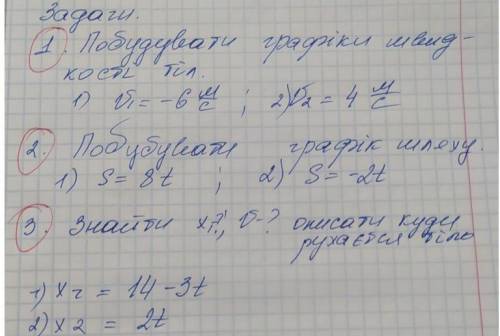 Задачі.
1. Побудувати графіки швид-
кості тіл.
1) v₁ = -6 м/с ; 2) v₂ = 4 м/с
2. Побубувати графік шляху.
1) S = 8t ; 2) S = -2t
3. Знайти x-?, v-? описати куди
рухається тіло
1) x₁ = 14 - 3t
2) x₂ = 2t